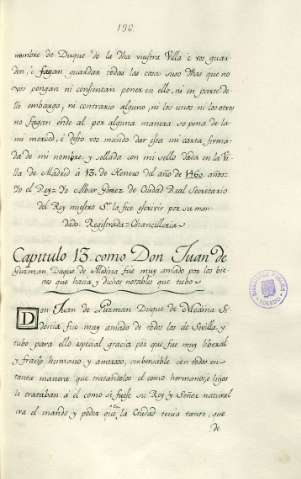 190.
nombre de Duque de la dha vuestra Villa è vos guar
den, è fagan guardar todas las cosas suso dhas que no
vos pongan ni consientan poner en ello, ni en parte de
llo embargo, ni contrario alguno, ni los unos ni los otros
no fagan ende al por alguna manera so pena de la
mi merced, è desto vos mandè dar esta mi carta firma
da de mi nombre, y sellada con mi sello Dada en la Vi
lla de Madrid à 13. de Henero del año de 1460. años:
Yo el Rey: Yo Alvar Gomez de Ciudad Real Secretario
del Rey nuestro Sr. la fice escrivir por su man
dado: Registrada: Chancilleria
Capitulo 13. como Don Juan de
Guzman Duque de Medina fue muy amado por los bie
nes que hacia, y dichos notables que tubo
Don Juan de Guzman Duque de Medina Si
donia fue muy amado de todos los de Sevilla, y
tubo para ello especial gracia por que fue muy liberal
y franco humano y amoroso, conversable con todos en
tanta manera que tratandolos èl como hermanos è hijos
le trataban à èl como si fuese su Rey y Señor natural
era el mando y poder que en la Ciudad tenia tanto, que
de